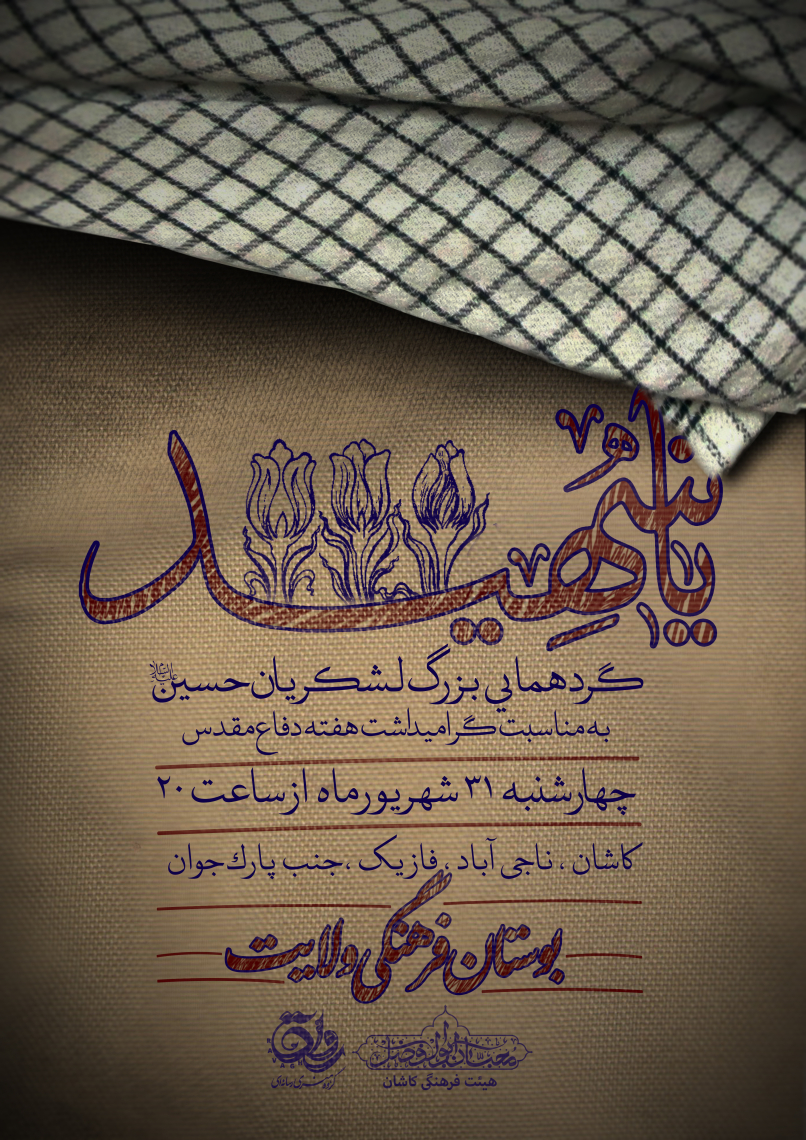 یا شهید
گردهمایی بزرگ لشکریان حسین علیه‌السلام
به مناسبت گرامیداشت هفته دفاع مقدس
چهارشنبه ۳۱ شهریورماه از ساعت ۲۰
کاشان ، ناجی آباد ، فازیک ، جنب پارک جوان
بوستان فرهنگی ولایت
محبان ابوالفضل
هیئت فرهنگی کاشان